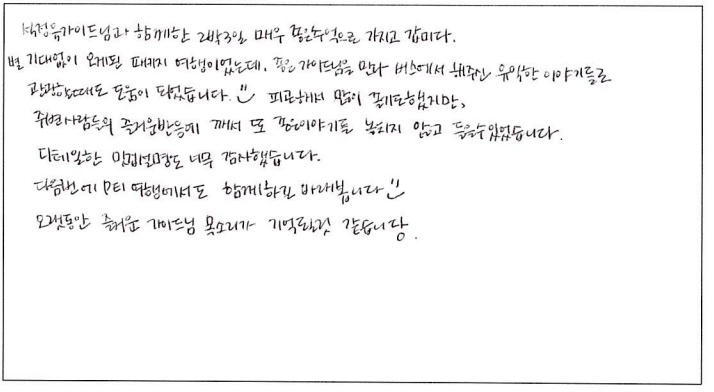 석정유가이드님과 함께한 2박3일 매우 좋은추억으로 가지고 갑미다.
별 기대없이 오게된 패키지 여행이었는데, 좋은 가이드님을 만나 버스에서 해주신 유익한 이야기들로
관광할때도 도움이 되었습니다. 피곤해서 많이 졸기도했지만,
주변사람들의 즐거운반응에 깨서 또 좋은이야기를 놓치지 않고 들을수있었습니다.
디테일한 맛집설명도 너무 감사했습니다.
다음번에 여행에서도 함께하길 바래봅니다
오랫동안 즐거운 가이드님 목소리가 기억될것 같습니당.